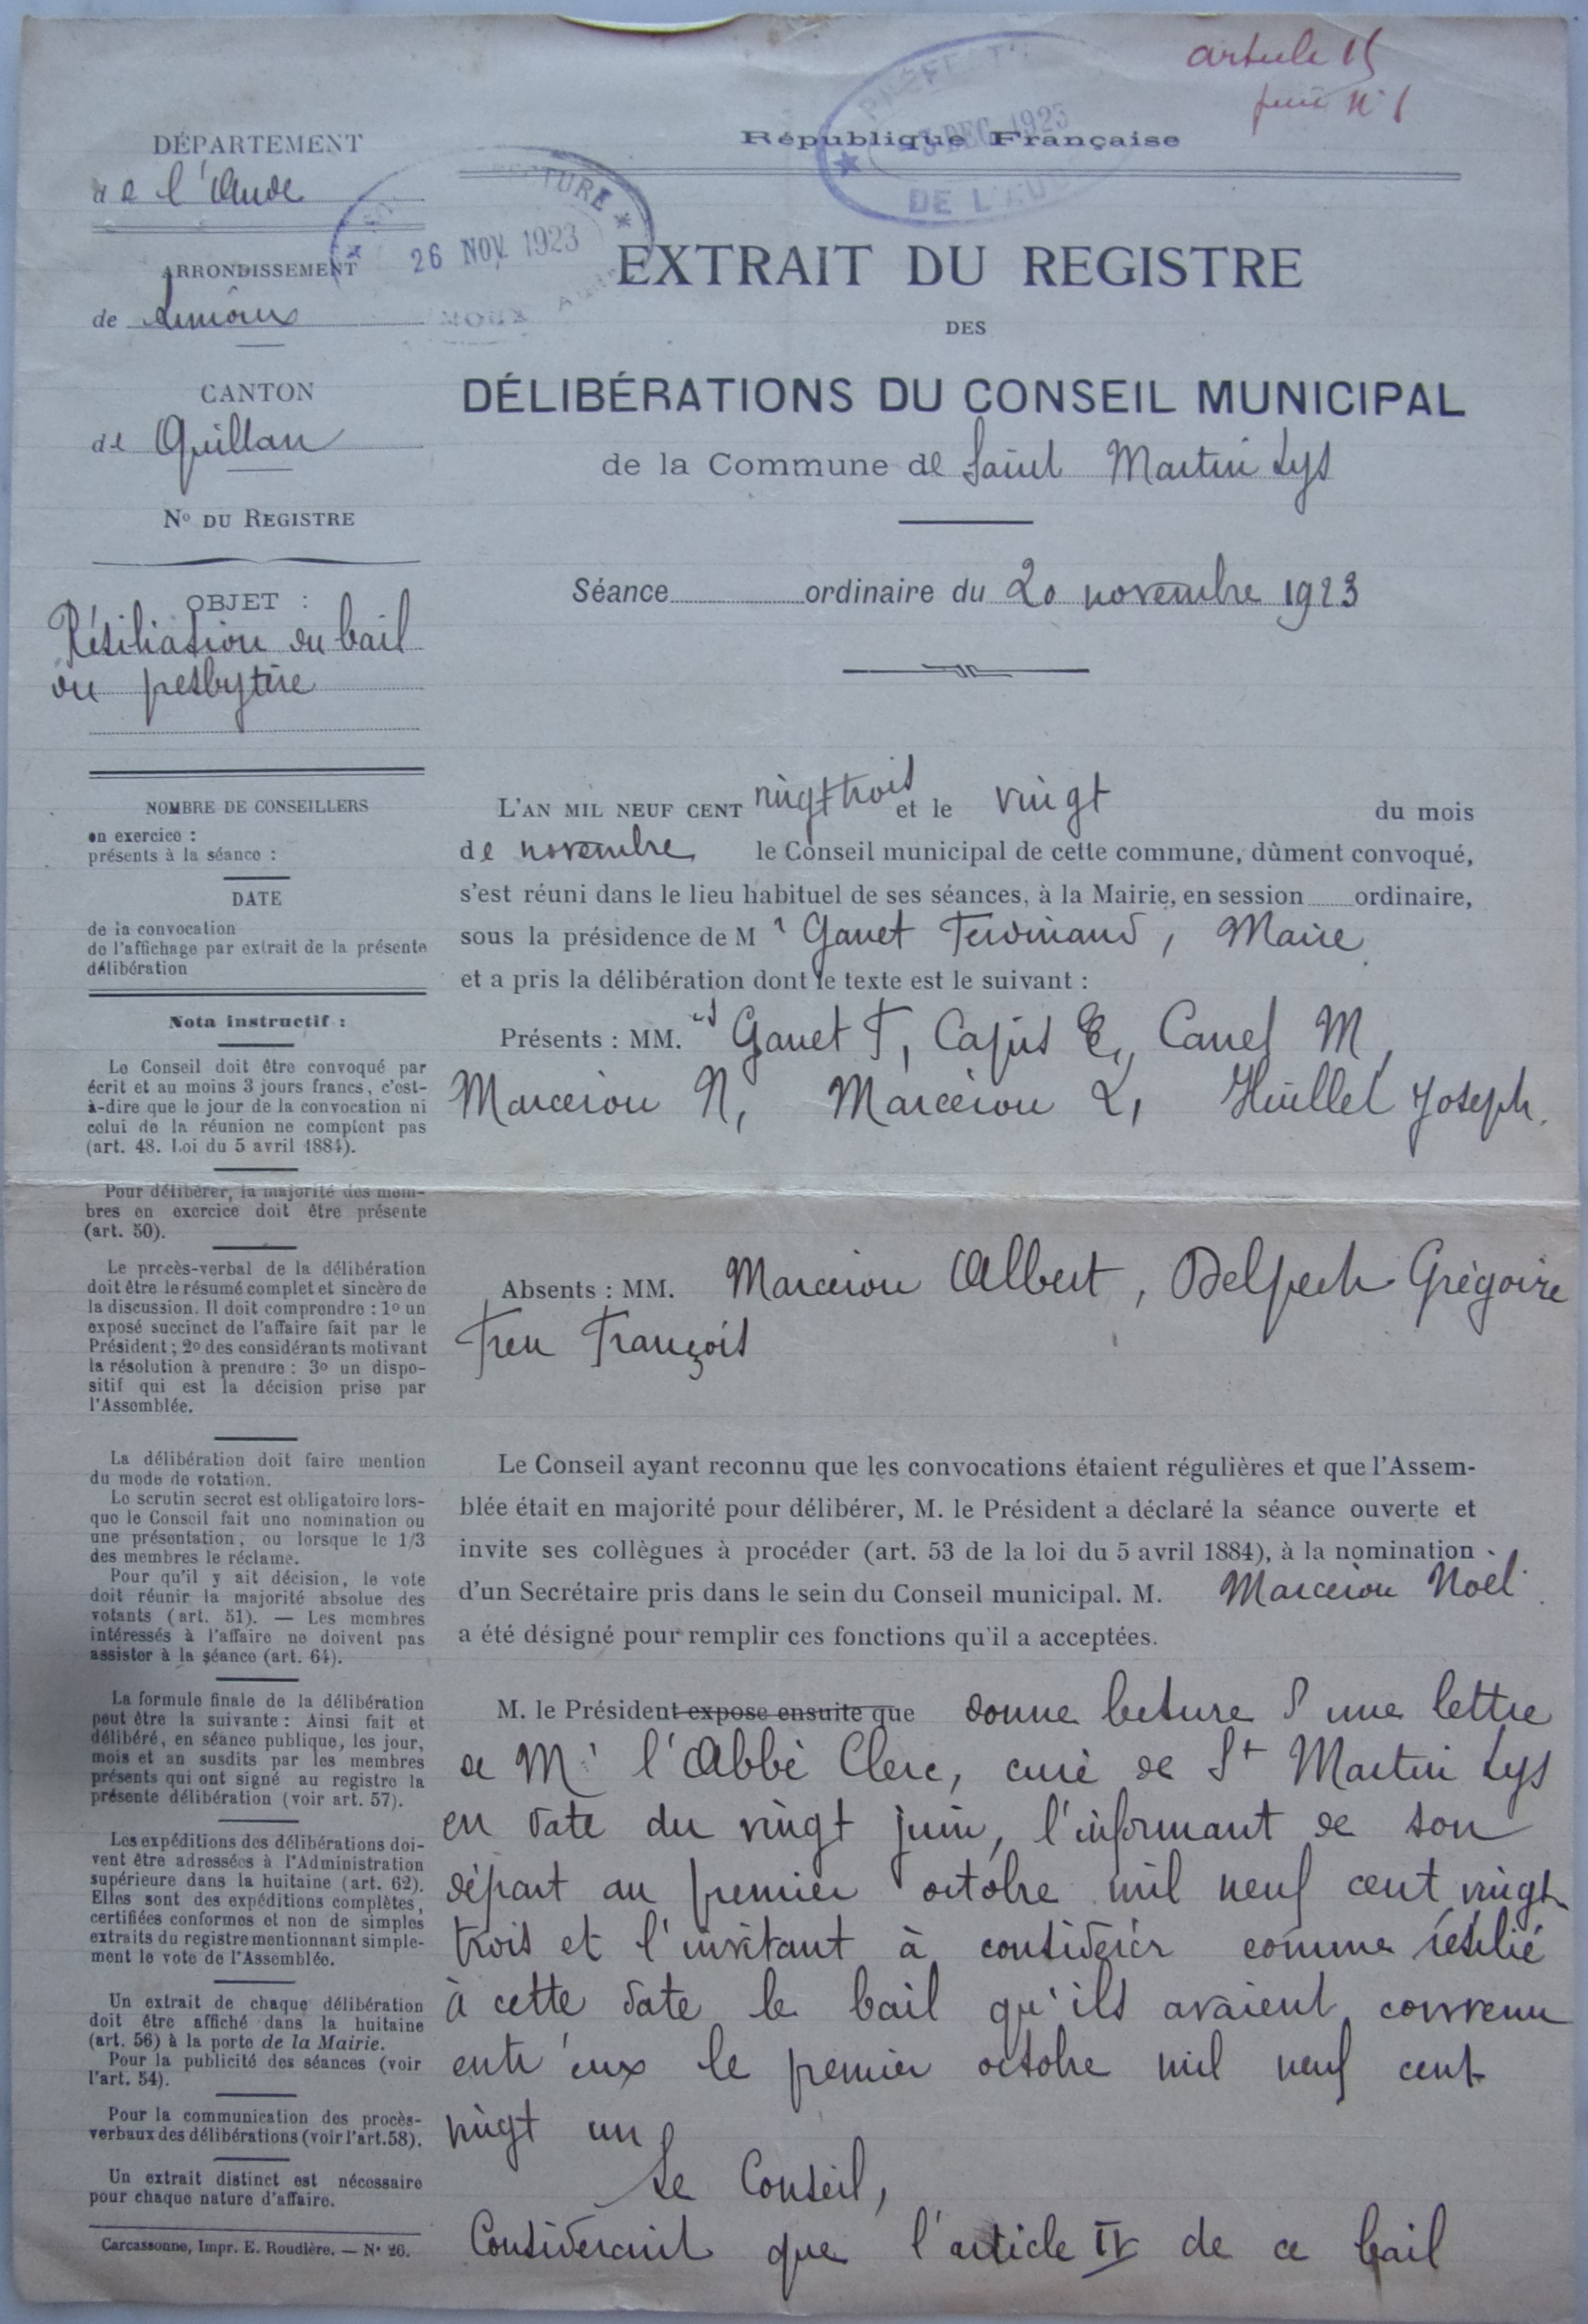 article 15
N° 1
PRÉFECTURE
DEC 1923
DE L'AUDE
République Française
DÉPARTEMENT
de l'Aude
26 NOV. 1923
ARRONDISSEMENT
de Limoux
CANTON
de Quillan
N° DU REGISTRE
OBJET :
Résiliation du bail
du presbytère
NOMBRE DE CONSEILLERS
en exercice :
présents à la séance :
DATE
de la convocation
de l'affichage par extrait de la présente
délibération
Nota instructif :
Le Conseil doit être convoqué par
écrit et au moins 3 jours francs, c'est-
à-dire que le jour de la convocation ni
celui de la réunion ne comptent pas
(art. 48. Loi du 5 avril 1884).
Pour délibérer, la majorité des mem-
bres en exercice doit être présente
(art. 50).
Le procès-verbal de la délibération
doit être le résumé complet et sincère de
la discussion. Il doit comprendre : 1° un
exposé succinct de l'affaire fait par le
Président ; 2° des considérants motivant
la résolution à prendre : 3° un dispo-
sitif qui est la décision prise par
l'Assemblée.
La délibération doit faire mention
du mode de votation.
Le scrutin secret est obligatoire lors-
que le Conseil fait une nomination ou
une présentation, ou lorsque le 1/3
des membres le réclame.
Pour qu'il y ait décision, le vote
doit réunir la majorité absolue des
votants (art. 51). — Les membres
intéressés à l'affaire ne doivent pas
assister à la séance (art. 64).
La formule finale de la délibération
peut être la suivante : Ainsi fait et
délibéré, en séance publique, les jour,
mois et an susdits par les membres
présents qui ont signé au registre la
présente délibération (voir art. 57).
Les expéditions des délibérations doi-
vent être adressées à l'Administration
supérieure dans la huitaine (art. 62).
Elles sont des expéditions complètes,
certifiées conformes et non de simples
extraits du registre mentionnant simple-
ment le vote de l'Assemblée.
Un extrait de chaque délibération
doit être affiché dans la huitaine
(art. 56) à la porte de la Mairie.
Pour la publicité des séances (voir
l'art. 54).
Pour la communication des procès-
verbaux des délibérations (voir l'art. 58).
Un extrait distinct est nécessaire
pour chaque nature d'affaire.
Carcassonne, Impr. E. Roudière. — N° 26.
EXTRAIT DU REGISTRE
DES
DÉLIBÉRATIONS DU CONSEIL MUNICIPAL
de la Commune de Saint Martin Lys
Séance ordinaire du 20 novembre 1923
L'AN MIL NEUF CENT vingt trois et le vingt du mois
de novembre le Conseil municipal de cette commune, dûment convoqué,
s'est réuni dans le lieu habituel de ses séances, à la Mairie, en session ordinaire,
sous la présidence de M r Ganet Ferdinand, Maire
et a pris la délibération dont le texte est le suivant :
Présents : MM. rs Ganet F, Cajus E, Canel M,
Marcerou N, Marcerou L, Huillet Joseph.
Absents : MM. Marcerou Albert, Delpech Grégoire
Freu François
Le Conseil ayant reconnu que les convocations étaient régulières et que l'Assem-
blée était en majorité pour délibérer, M. le Président a déclaré la séance ouverte et
invite ses collègues à procéder (art. 53 de la loi du 5 avril 1884), à la nomination
d'un Secrétaire pris dans le sein du Conseil municipal. M. Marcerou Noel
a été désigné pour remplir ces fonctions qu'il a acceptées.
M. le Président expose ensuite que donne lecture d'une lettre
de Mr l'Abbé Clerc, curé de St Martin Lys
en date du vingt juin, l'informant de son
départ au premier octobre mil neuf cent vingt
trois et l'invitant à considérer comme résilié
à cette date le bail qu'ils avaient convenu
entr'eux le premier octobre mil neuf cent
vingt un
Le Conseil,
Considerant que l'article IV de ce bail